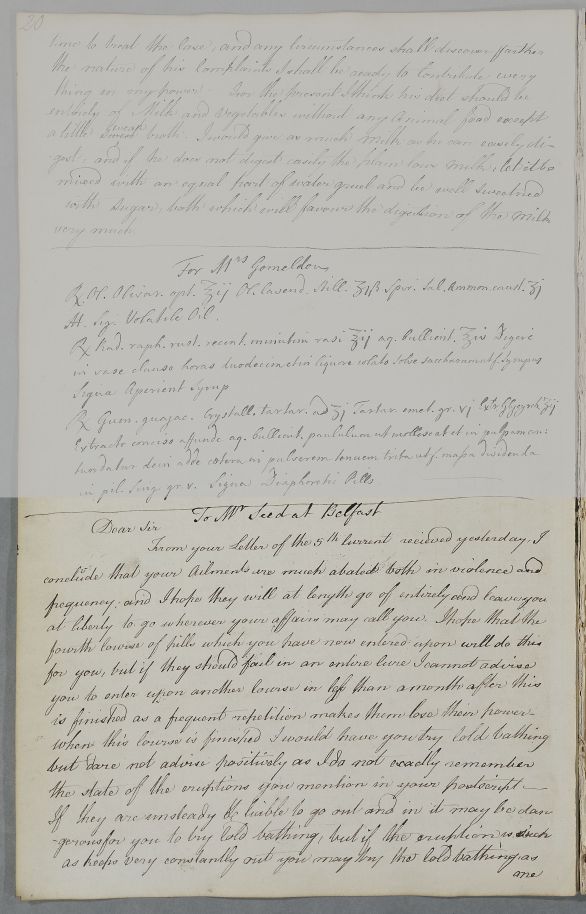 20
time to treat the Case, and any Circumstances shall discover farther
the nature of his Complaints I shall be ready to Contribute every
thing in my power. For the present I think his diet should be
entirely of Milk and vegetables without any Animal food except
a little broth. I would give as much milk as he can easily di-
gest, and if he does not digest easily the plain Cow milk, let it be
mixed with an equal part of water gruel and be well sweetned
with Sugar, both which will favour the digestion of the milk
very much.
For Mrs Gomeldon
℞ Ol. Olivar. opt. ʒij Ol. lavend. still. ʒiß Spir. Sal. Ammon. caust. ʒj
M. Sig. Volatile Oil.
℞ Rad. raph. rust. recent. minutim rasi ʒij aq. bullient. ʒis Digere
in vase clauso horas duodecim et in liquore colato solve sacchari ut f. syrupus
Signa Aperient Syrup
℞ Gum. guajac. Crystall. tartar. aa ʒj Tartar. emet. gr. vj Extr. Glycyrrh. ʒij
Extracto conciso affunde aq. bullient. paululum ut mollescat et in pulpam con:
tundatur dein adde cetera in pulverem tenuem trita ut f. massa dividenda
in pil. sing. gr. v. Signa Diaphoretic Pills
To Mr Seed at Belfast
Dear Sir
From your Letter of the 5th Current recieved yesterday, I
conclude that your Ailments are much abated both in violence and
frequency, and I hope they will at length go of entirely and leave you
at liberty to go wherever your affairs may call you. I hope that the
fourth Course of pills which you have now entered upon will do this
for you, but if they should fail in an entire Cure I cannot advise
you to enter upon another Course in less than a month after this
is finished as a frequent repetition makes them lose their power.
When this Course is finished I would have you try Cold bathing
but dare not advise positively as I do not exactly remember
the state of the eruptions you mention in your postscript —
If they are unsteady & liable to go out and in it may be dan
-gerous for you to try Cold bathing, but if the eruption is such
as keeps very constantly out you may try the Cold bathing, as
one